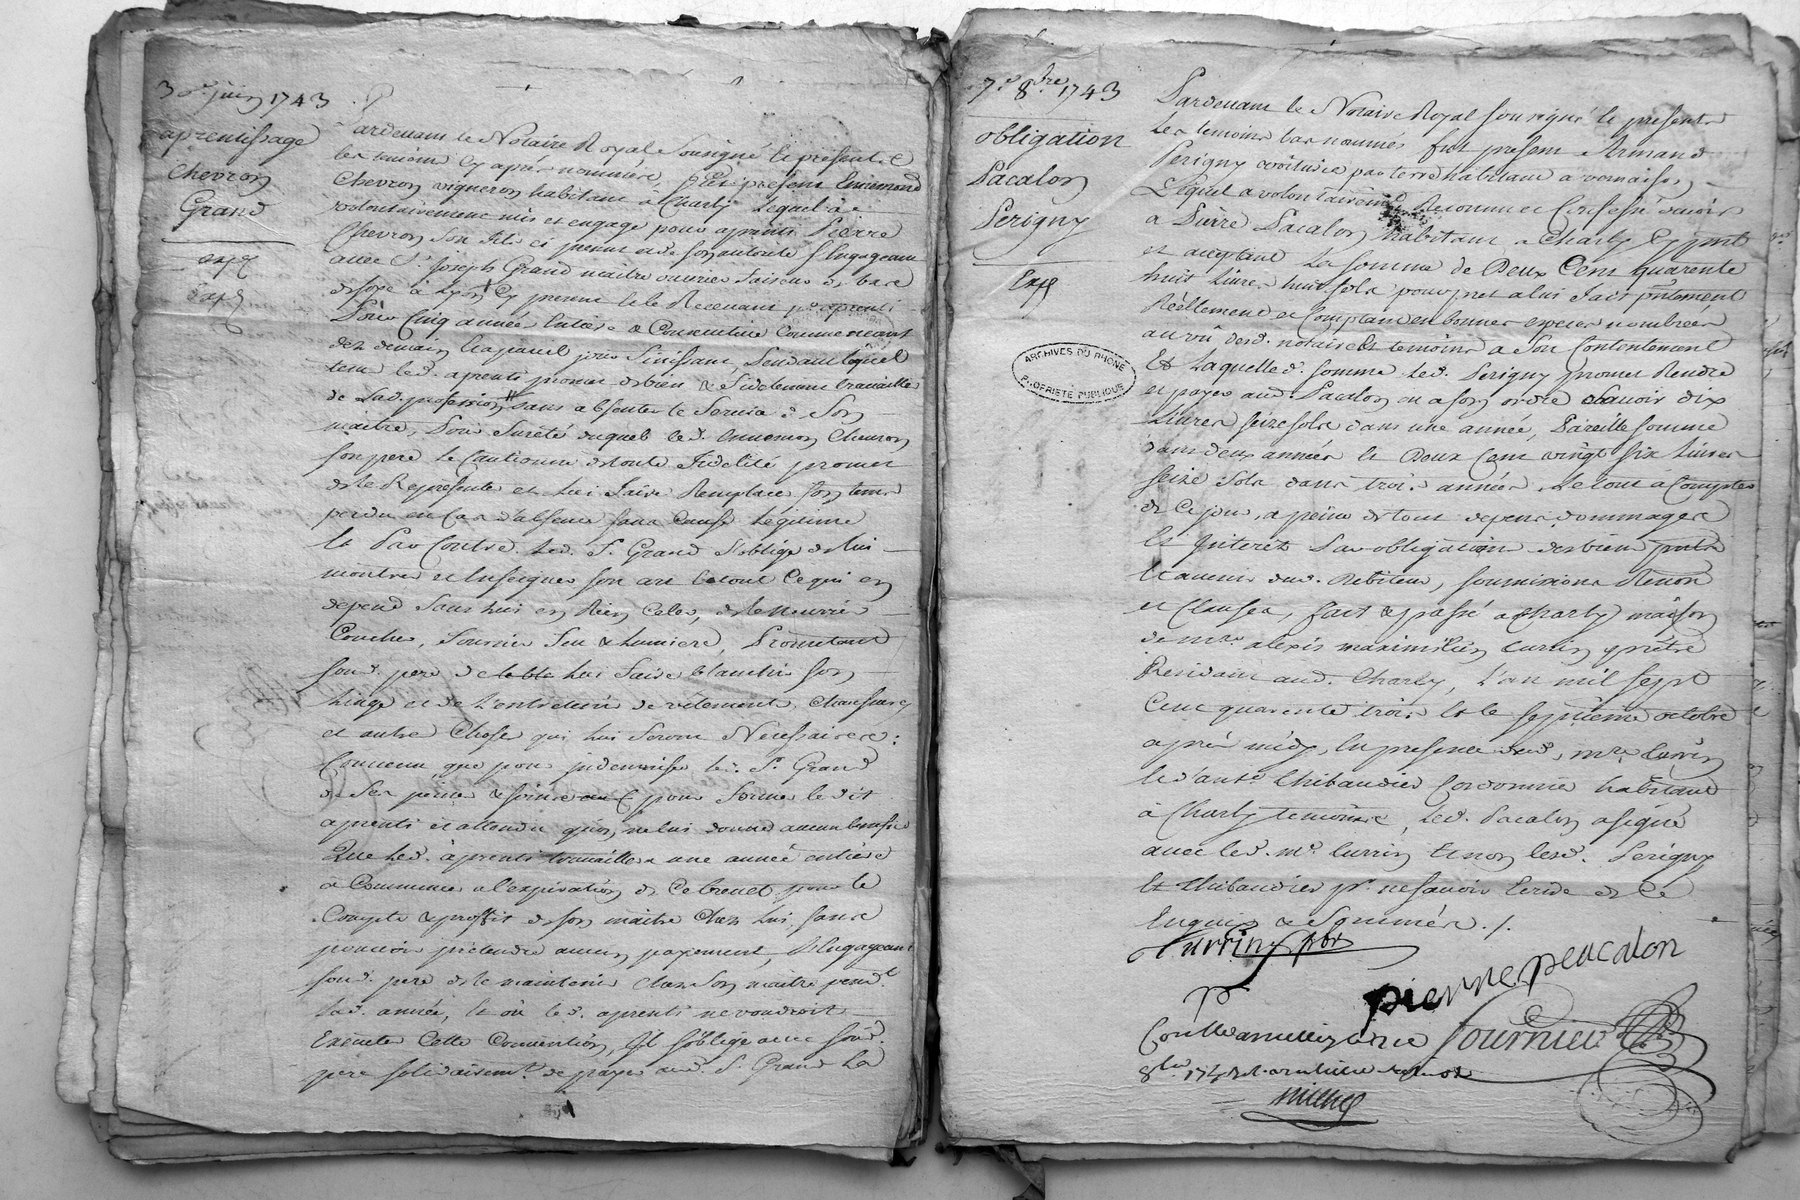 30e juin 1743
aprentissage
Chevron
Grand
exp
exp
Pardevant le Notaire Royal Sousigné le présent et
les témoins cy après nommés, fut présent Ennemond
Chevron vigneron habitant à Charly lequel à
volontairement mis et engagé pour aprenti Pierre
Chevron son fils ci présent et de son autorité s'engageant
avec Sr. Joseph Grand maitre ouvrier faiseur de bas
de soye à Lyon cy présent et le Recevant pr. aprenti
Pour Cinq années Entiere & Consecutive Commencant
dez demain Et à pareil jour finissant, Pendant lequel
tems led. aprenti promet de bien & fidelement travailler
de Lad. profession, sans absenter le Service de Son
maitre, Pour Sureté duquel led. ennemon Chevron
son pere le Cautionne de toute fidelité promet
de le Representer et Lui faire Remplacer son tems
perdu en Cas d'absence sans Cause Legitime
Et Par Contre Led. Sr. Grand s'oblige de lui
montrer et Enseigner son art Et tout Ce qui en
depend Sans lui en Rien Celer, de le Nourrir
Coucher, fournir feu & Lumiere, Promettant
sond. pere de lui faire blanchir son
Linge et de L'entretenir de vêtement, chaussure
et autre Chose qui lui Seront Nécessaires :
Convenu que pour indemniser led. Sr. Grand
de Ses peines & soins pour former le dit
aprenti et attendu qu'on ne lui donne aucun
Que led. aprenti travaillera une année entiere
à Commencer a l'expiration de Ce brevet pour le
Compte & profit de son maitre Chez Lui, sans
pouvoir prétendre aucun payement, s'Engageant
sond. pere de le maintenir chez son maitre pendt.
lad. année, Et où led. aprenti ne voudroit
Executer Cette Convention, il s'oblige avec sond.
pere solidairemt. de payer aud. Sr. Grand La
7e. 8bre 1743
obligation
Pacalon
Perigny
Exp
Pardevant le Notaire Royal soussigné le present
Les temoins bas nommés fut present Armand
Perigny voiturier par terre habitant a vernaison
Lequel a volontairement Reconnu et Confessé devoir
à Pierre Pacalon habitant a Charly Cy pnt
et aceptant La somme de Deux Cent quarente
huit Livres huit sols pour pret a lui fait pntement
Réellement et Comptant en bonnes especes nombrées
au vû desd. notaire & temoins a Son Contentement
Et Laquelle d. somme led. Perigny promet Rendre
et payer aud. Pacalon ou a son ordre Scavoir dix
Livres seize sols dans une année, Pareille somme
dans deux années et Deux Cent vingt six Livres
seize sols dans trois années, Le tout à Compter
de Ce jour, a peine de tout depens dommages
Et Interets Par obligation des biens pnts
Et avenir dud. debiteur, soumissions Renon
et Clauses, fait & passé a Charly maison
de mre alexis maximilien Currin prêtre
Residant aud. Charly, L'an mil sept
Cent quarente trois Et le septieme octobre
après midy, En presence dud. mre Currin
Et d'ant. Thibaudier Cordonnier habitant
à Charly temoins, Led. Pacalon a signé
avec led. mr. Currin Et non lesd. Perigny
Et Thibaudier pr. ne savoir Ecrire de Ce
Enquis & Sommés ./.
Currin pbr
pierre peacalon
fournier
ARCHIVES DU RHONE
PROPRIÉTÉ PUBLIQUE